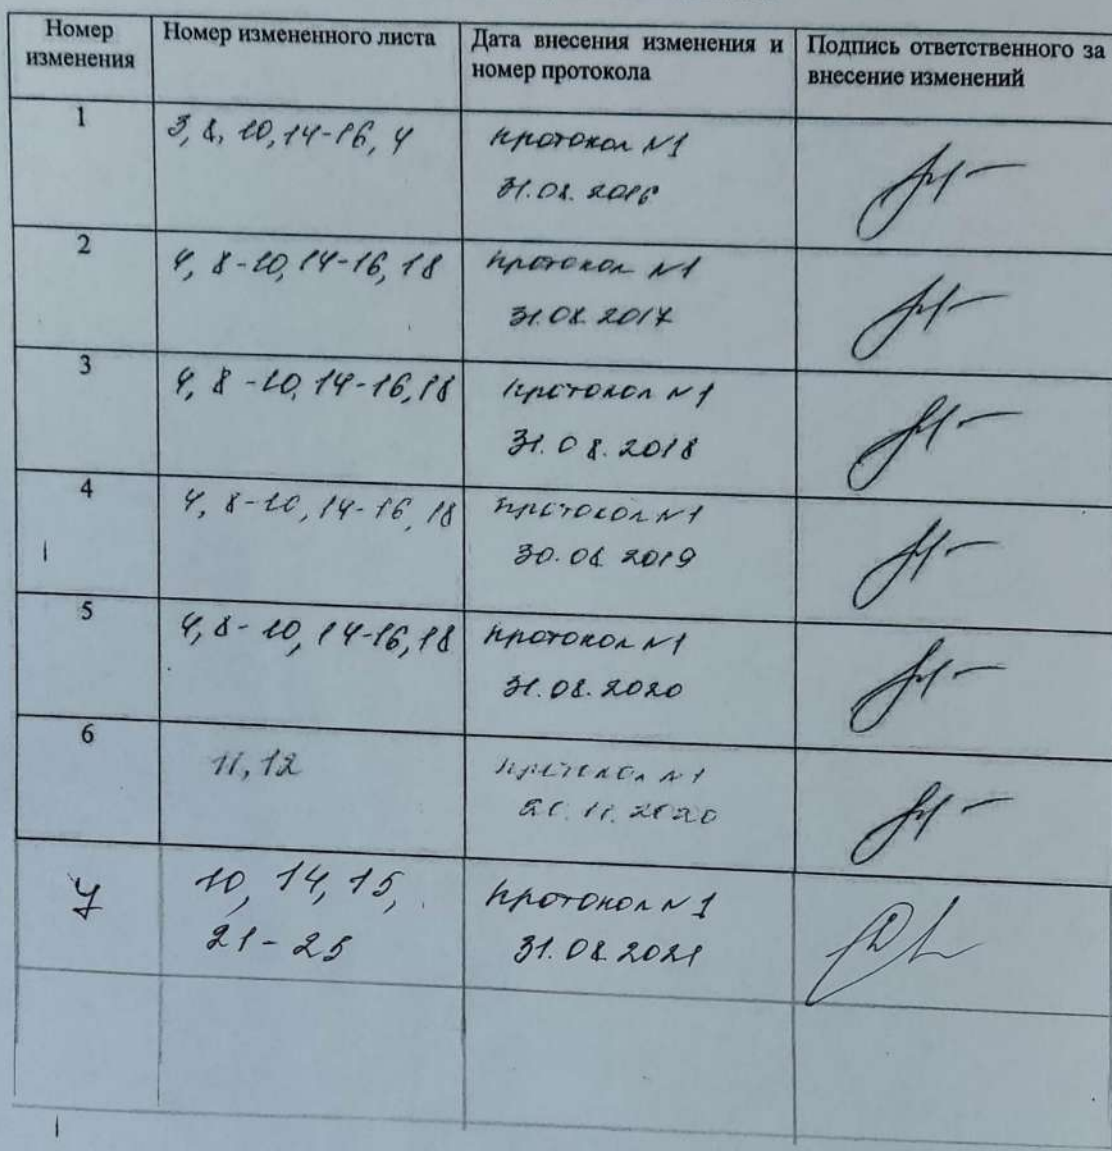 Номер изменения
Номер измененного листа
Дата внесения изменения и номер протокола
Подпись ответственного за внесение изменений
1
3, 8, 10, 14-16, 4
протокол №1
31.08.2016
2
4, 8-10, 14-16, 18
протокол №1
31.08.2017
3
4, 8-10, 14-16, 18
протокол №1
31.08.2018
4
4, 8-10, 14-16, 18
протокол №1
30.08.2019
5
4, 8-10, 14-16, 18
протокол №1
31.08.2020
6
11, 12
протокол №1
11.2020
7
10, 14, 15,
21-25
протокол №1
31.08.2021